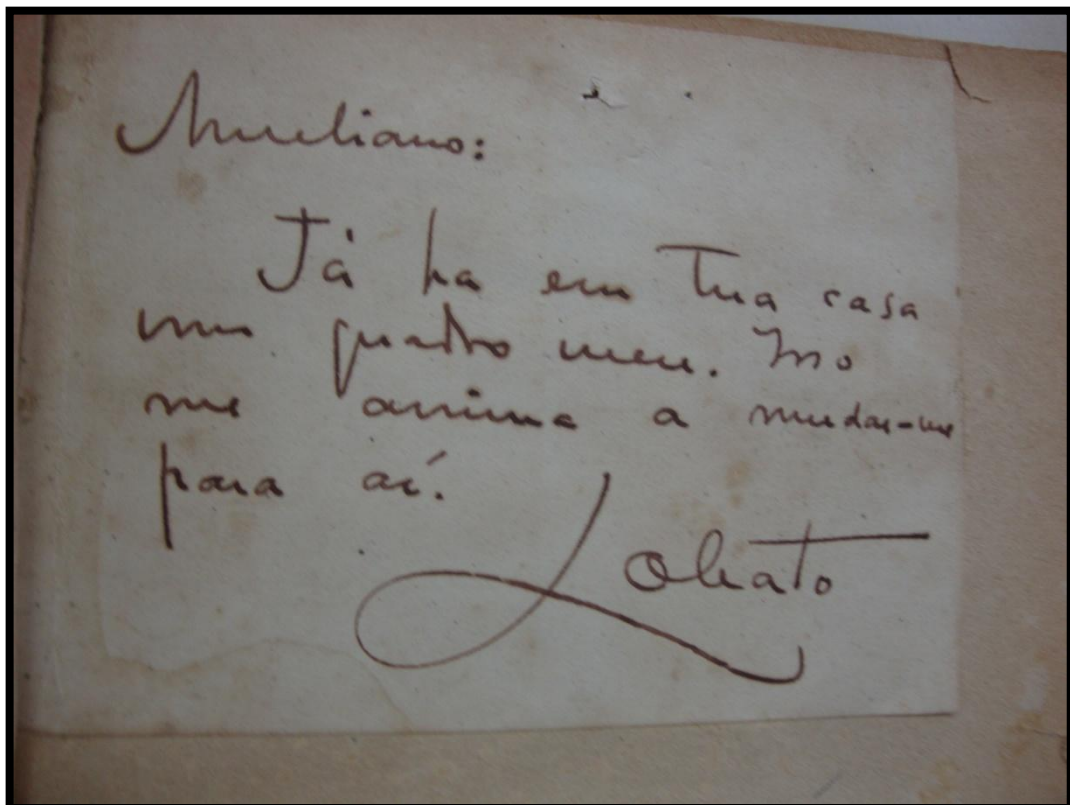 Aureliano:
Já ha em tua casa
um quadro meu. Isso
me anima a mudar-me
para aí.
Lobato